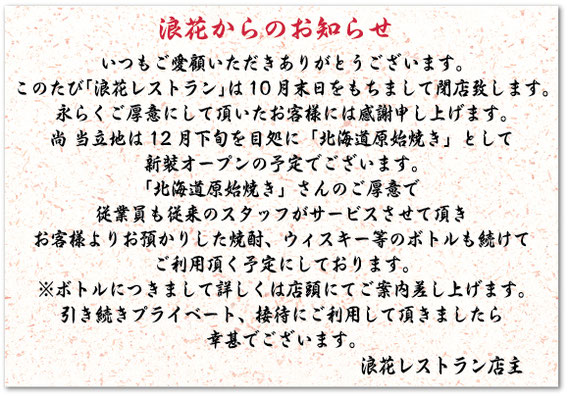 浪花からのお知らせ
いつもご愛顧いただきありがとうございます。
このたび｢浪花レストラン｣は10月末日をもちまして閉店致します。
永らくご厚意にして頂いたお客様には感謝申し上げます。
尚 当立地は12月下旬を目処に「北海道原始焼き」として
新装オープンの予定でございます。
「北海道原始焼き」さんのご厚意で
従業員も従来のスタッフがサービスさせて頂き
お客様よりお預かりした焼酎、ウィスキー等のボトルも続けて
ご利用頂く予定にしております。
※ボトルにつきまして詳しくは店頭にてご案内差し上げます。
引き続きプライベート、接待にご利用して頂きましたら
幸甚でございます。
浪花レストラン店主